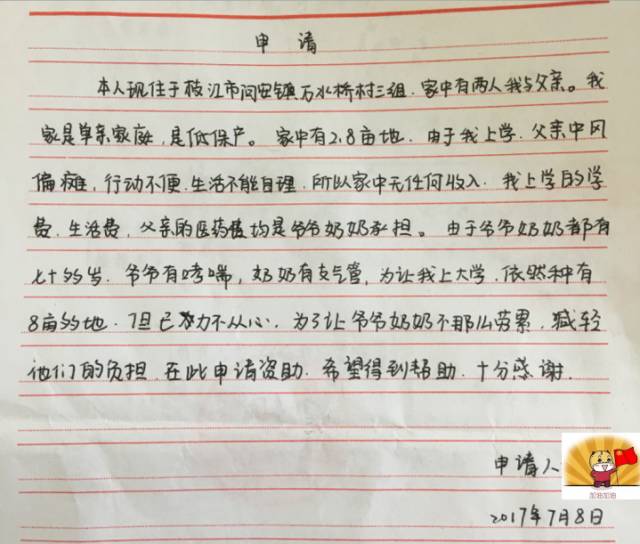 申请
本人现住于枝江市问安镇万水桥村三组.家中有两人我与父亲。我
家是单亲家庭,是低保户。家中有2.8亩地.由于我上学.父亲中风
偏瘫,行动不便.生活不能自理.所以家中无任何收入.我上学的学
费.生活费,父亲的医药费均是爷爷奶奶承担。由于爷爷奶奶都有
七十多岁.爷爷有哮喘,奶奶有支气管,为让我上大学.依然种有
8亩多地.但已力不从心.为了让爷爷奶奶不那么劳累.减轻
他们的负担.在此申请资助.希望得到帮助.十分感谢.
申请人
加油加油
2017年7月8日